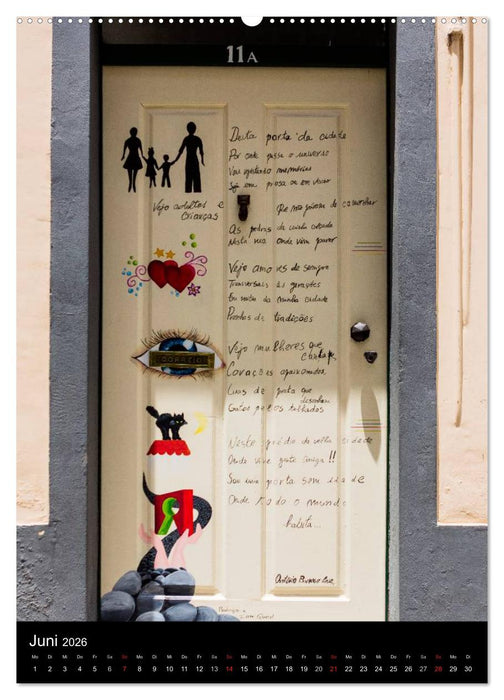 11A
Desta porta da cidade
Por onde passa o universo
Vou espiando memórias
Seja em prosa ou em verso
Vejo adultos e
Crianças
de caminhar
As pedras da minha calçada
Nesta rua onde vim parar
Vejo amores de sempre
Transversais às gerações
da minha cidade
tradições
Vejo mulheres que
Corações apaixonados
CORREIO
Luas de prata que
Gatos pelos telhados
Neste prédio da velha cidade
Onde vive gente amiga!!
Sou uma porta sem idade
Onde todo o mundo
habita...
António
Juni 2026
Mo Di Mi Do Fr Sa So Mo Di Mi Do Fr Sa So Mo Di Mi Do Fr Sa So Mo Di Mi Do Fr Sa So Mo Di
1 2 3 4 5 6 7 8 9 10 11 12 13 14 15 16 17 18 19 20 21 22 23 24 25 26 27 28 29 30